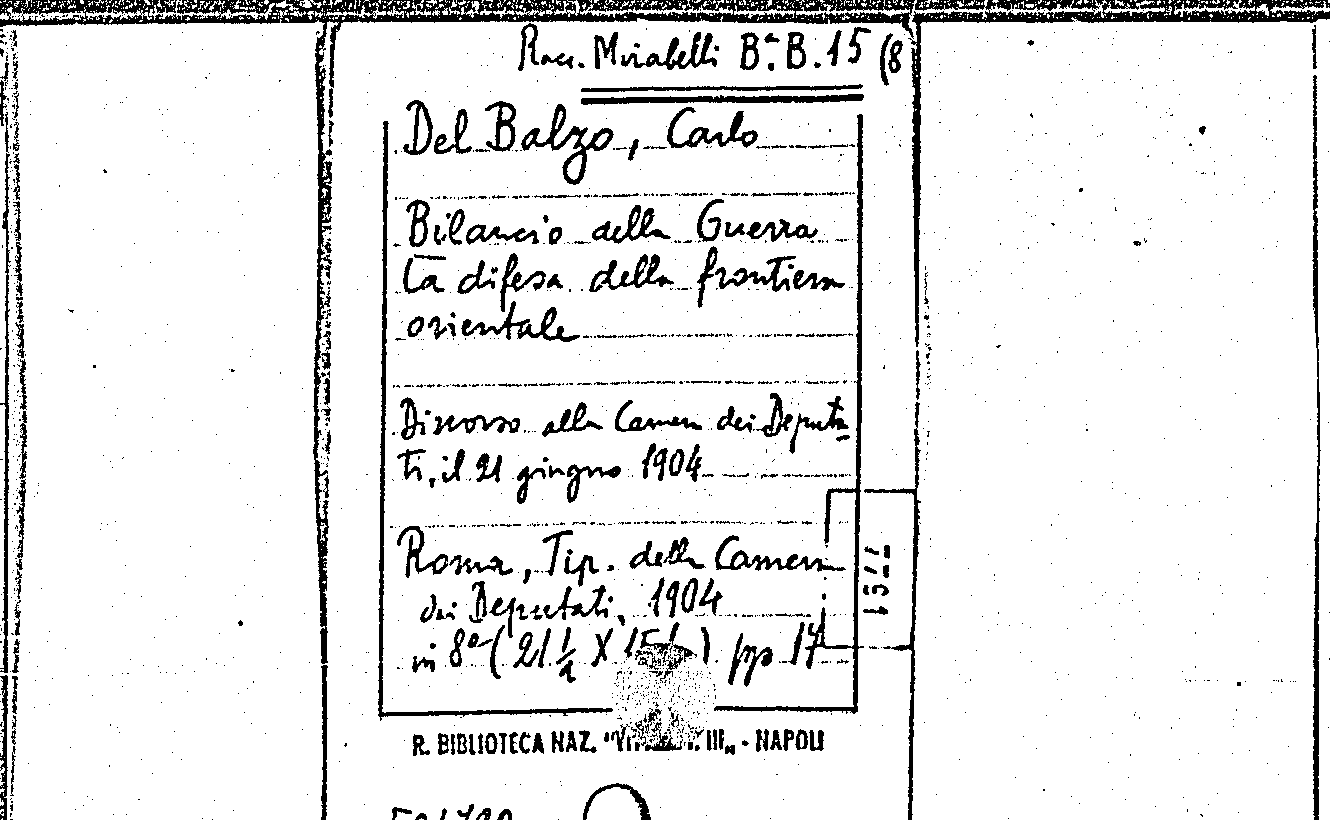 Racc. Mirabelli Bª. B. 15 (8
Del Balzo, Carlo
Bilancio della Guerra
La difesa della frontiera
orientale
Discorso alla Camera dei Deputa
ti, il 21 giugno 1904
Roma, Tip. della Camera
dei Deputati, 1904
in 8º ( 21 ½ X ) pp 17
R. BIBLIOTECA NAZ. III„ - NAPOLI